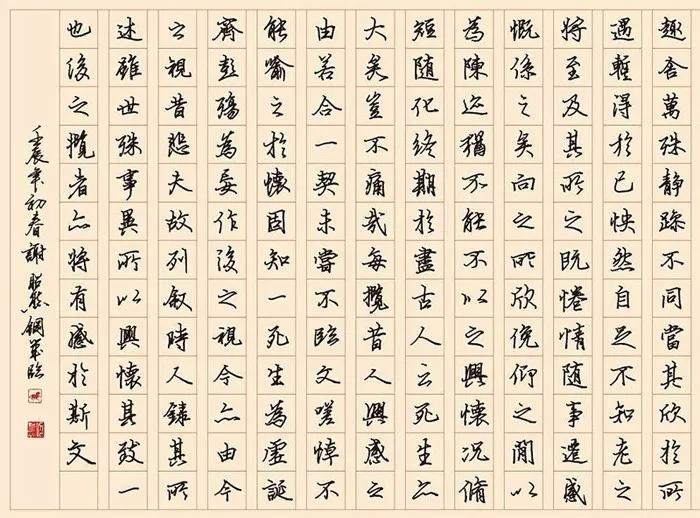 趣舍萬殊静躁不同當其欣於所
遇暫得於己怏然自足不知老之
將至及其所之既惓情随事遷感
慨係之矣向之所欣俛仰之閒以
為陳迹猶不能不以之興懷况脩
短随化終期於盡古人云死生亦
大矣豈不痛哉每攬昔人興感之
由若合一契未嘗不臨文嗟悼不
能喻之於懷固知一死生為虛誕
齊彭殤為妄作後之視今亦由今
之視昔悲夫故列叙時人錄其所
述雖世殊事異所以興懷其致一
也後之攬者亦將有感於斯文
壬辰年初春謝昭然鋼筆臨